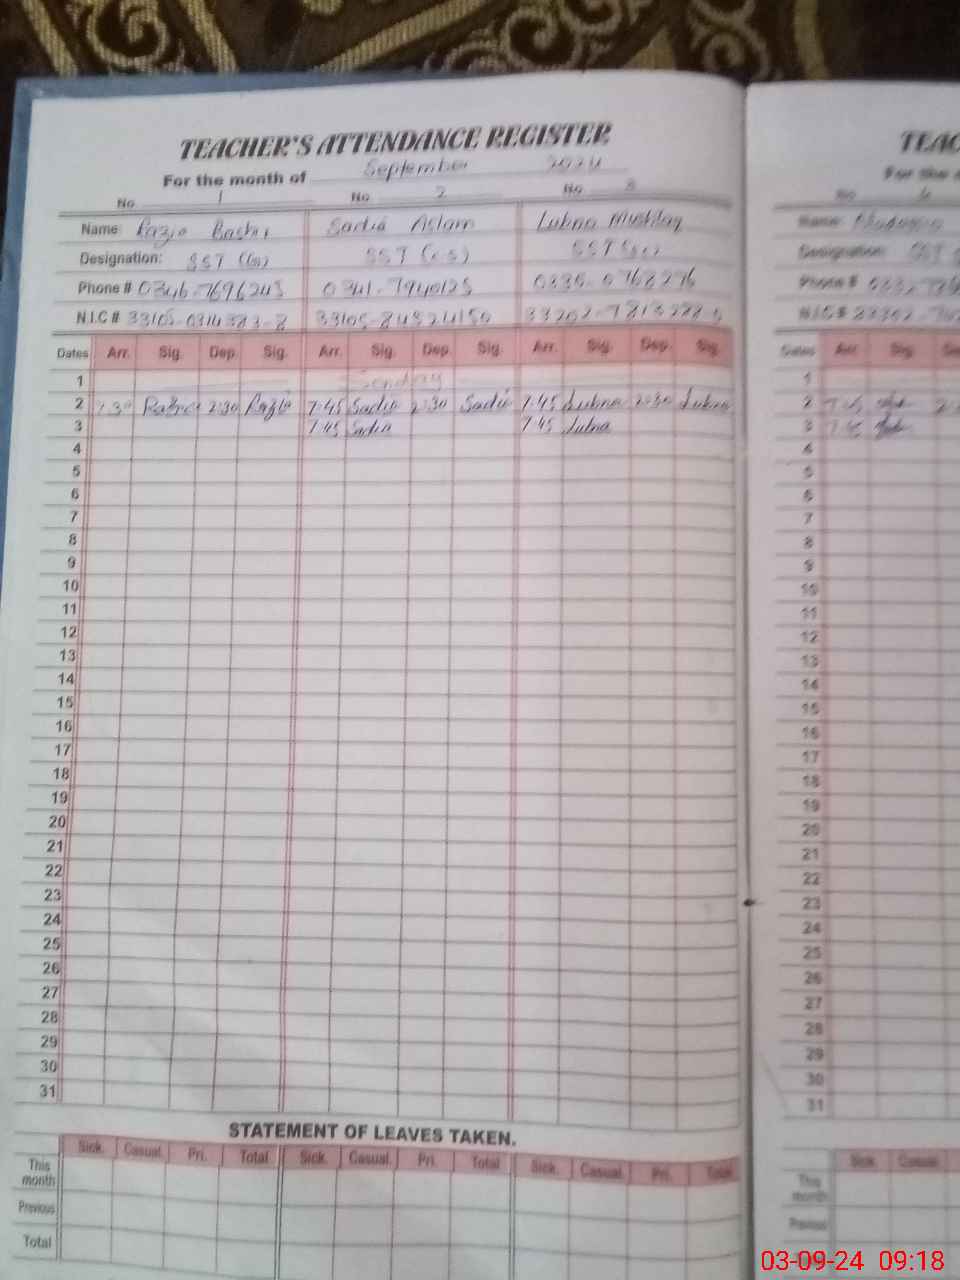 TEACHER'S ATTENDANCE REGISTER
For the month of September 2024
No 1 No 2 No 3
Name: Razia Bashir Sadia Aslam Lubna Mushtaq
Designation: SST SST SST
Phone # 0346-7696245 0341-7940125
N.I.C #
Dates Arr. Sig. Dep. Sig. Arr. Sig. Dep. Sig. Arr. Sig. Dep. Sig.
1 Sunday
2 7:30 Razia 2:30 Razia 7:45 Sadia 2:30 Sadia 7:45 Lubna 2:30 Lubna
3 7:45 Sadia 7:45 Lubna
4
5
6
7
8
9
10
11
12
13
14
15
16
17
18
19
20
21
22
23
24
25
26
27
28
29
30
31
STATEMENT OF LEAVES TAKEN.
Sick. Casual. Pri. Total Sick. Casual. Pri. Total Sick. Casual. Pri. Total
This month
Previous
Total
TEAC
For the
No 4
Name:
Designation:
Phone #
N.I.C #
Dates Arr. Sig.
1
2
3 7:45
4
5
6
7
8
9
10
11
12
13
14
15
16
17
18
19
20
21
22
23
24
25
26
27
28
29
30
31
Sick. Casual
This month
Previous
03-09-24 09:18